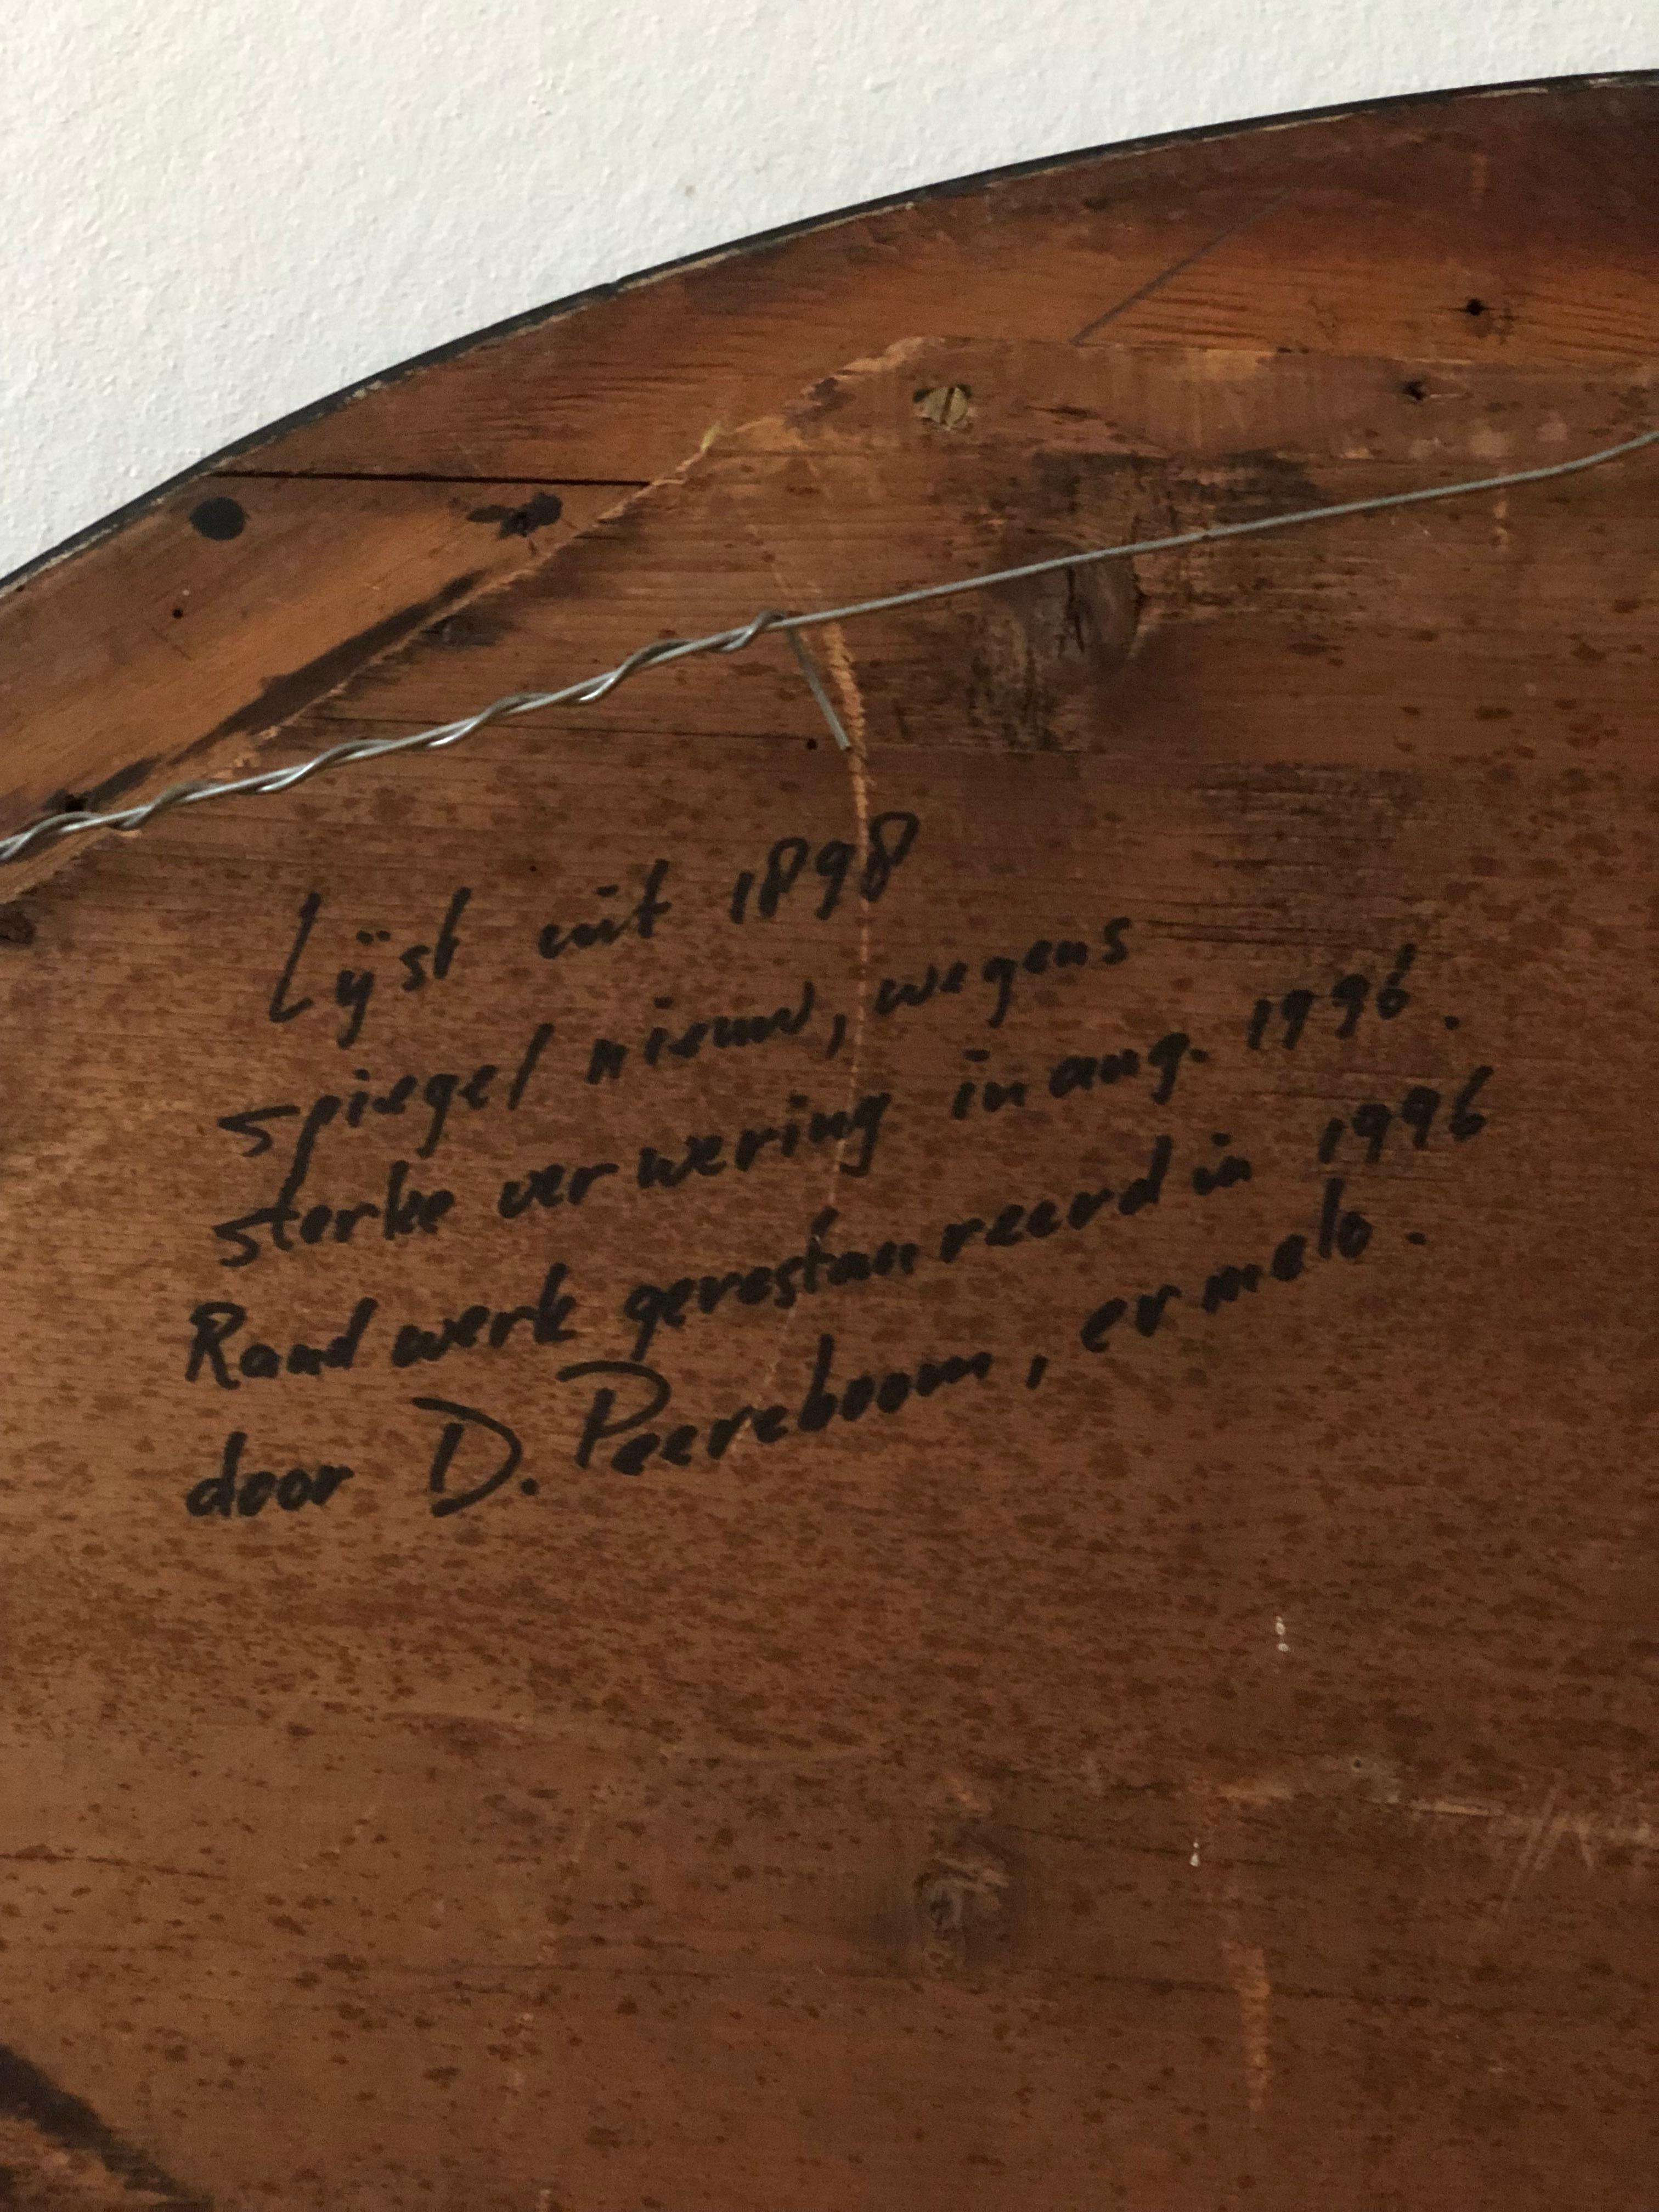 Lÿst uit 1898
spiegel nieuw, wegens
sterke verwering in aug. 1996.
Randwerk gerestaureerd in 1996
door D. Peereboom, ermelo.